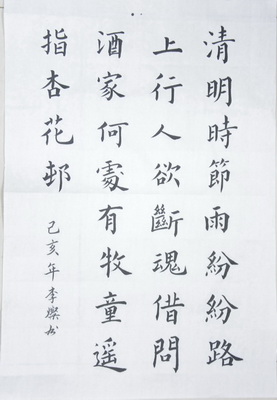 清明時節雨紛紛路
上行人欲斷魂借問
酒家何處有牧童遥
指杏花邨
己亥年李燦书